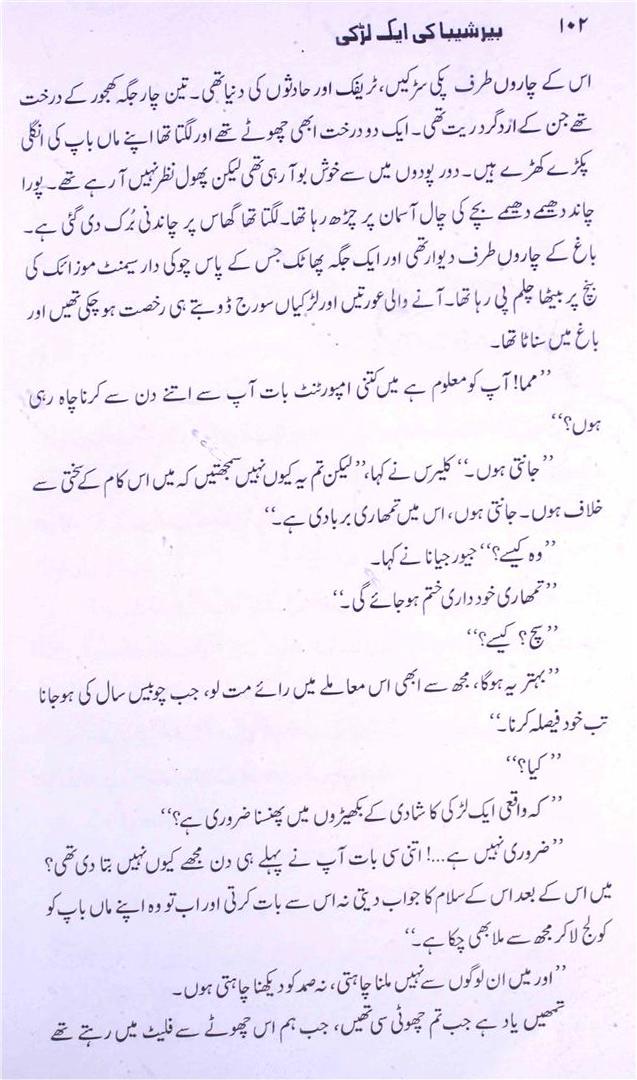 ۱۰۲ بیرشیبا کی ایک لڑکی
اس کے چاروں طرف پکی سڑکیں، ٹریفک اور حادثوں کی دنیا تھی۔ تین چار جگہ کھجور کے درخت
تھے جن کے اردگرد ریت تھی۔ ایک دو درخت ابھی چھوٹے تھے اور لگتا تھا اپنے ماں باپ کی انگلی
پکڑے کھڑے ہیں۔ دور پودوں میں سے خوش بو آ رہی تھی لیکن پھول نظر نہیں آ رہے تھے۔ پورا
چاند دھیمے دھیمے بچے کی چال آسمان پر چڑھ رہا تھا۔ لگتا تھا گھاس پر چاندنی بُرک دی گئی ہے۔
باغ کے چاروں طرف دیوار تھی اور ایک جگہ پھاٹک جس کے پاس چوکی دار سیمنٹ موزائک کی
بنچ پر بیٹھا چلم پی رہا تھا۔ آنے والی عورتیں اور لڑکیاں سورج ڈوبتے ہی رخصت ہو چکی تھیں اور
باغ میں سناٹا تھا۔
”مما! آپ کو معلوم ہے میں کتنی امپورٹنٹ بات آپ سے اتنے دن سے کرنا چاہ رہی
ہوں؟“
”جانتی ہوں۔“ کلیرس نے کہا، ”لیکن تم یہ کیوں نہیں سمجھتیں کہ میں اس کام کے سختی سے
خلاف ہوں۔ جانتی ہوں، اس میں تمھاری بربادی ہے۔“
”وہ کیسے؟“ جیورجیانا نے کہا۔
”تمھاری خود داری ختم ہو جائے گی۔“
”سچ؟ کیسے؟“
”بہتر یہ ہوگا، مجھ سے ابھی اس معاملے میں رائے مت لو، جب چوبیس سال کی ہو جانا
تب خود فیصلہ کرنا۔“
”کیا؟“
”کہ واقعی ایک لڑکی کا شادی کے بکھیڑوں میں پھنسنا ضروری ہے؟“
”ضروری نہیں ہے...! اتنی سی بات آپ نے پہلے ہی دن مجھے کیوں نہیں بتا دی تھی؟
میں اس کے بعد اس کے سلام کا جواب دیتی نہ اس سے بات کرتی اور اب تو وہ اپنے ماں باپ کو
کولج لا کر مجھ سے ملا بھی چکا ہے۔“
”اور میں ان لوگوں سے نہیں ملنا چاہتی، نہ صمد کو دیکھنا چاہتی ہوں۔
تمھیں یاد ہے جب تم چھوٹی سی تھیں، جب ہم اس چھوٹے سے فلیٹ میں رہتے تھے